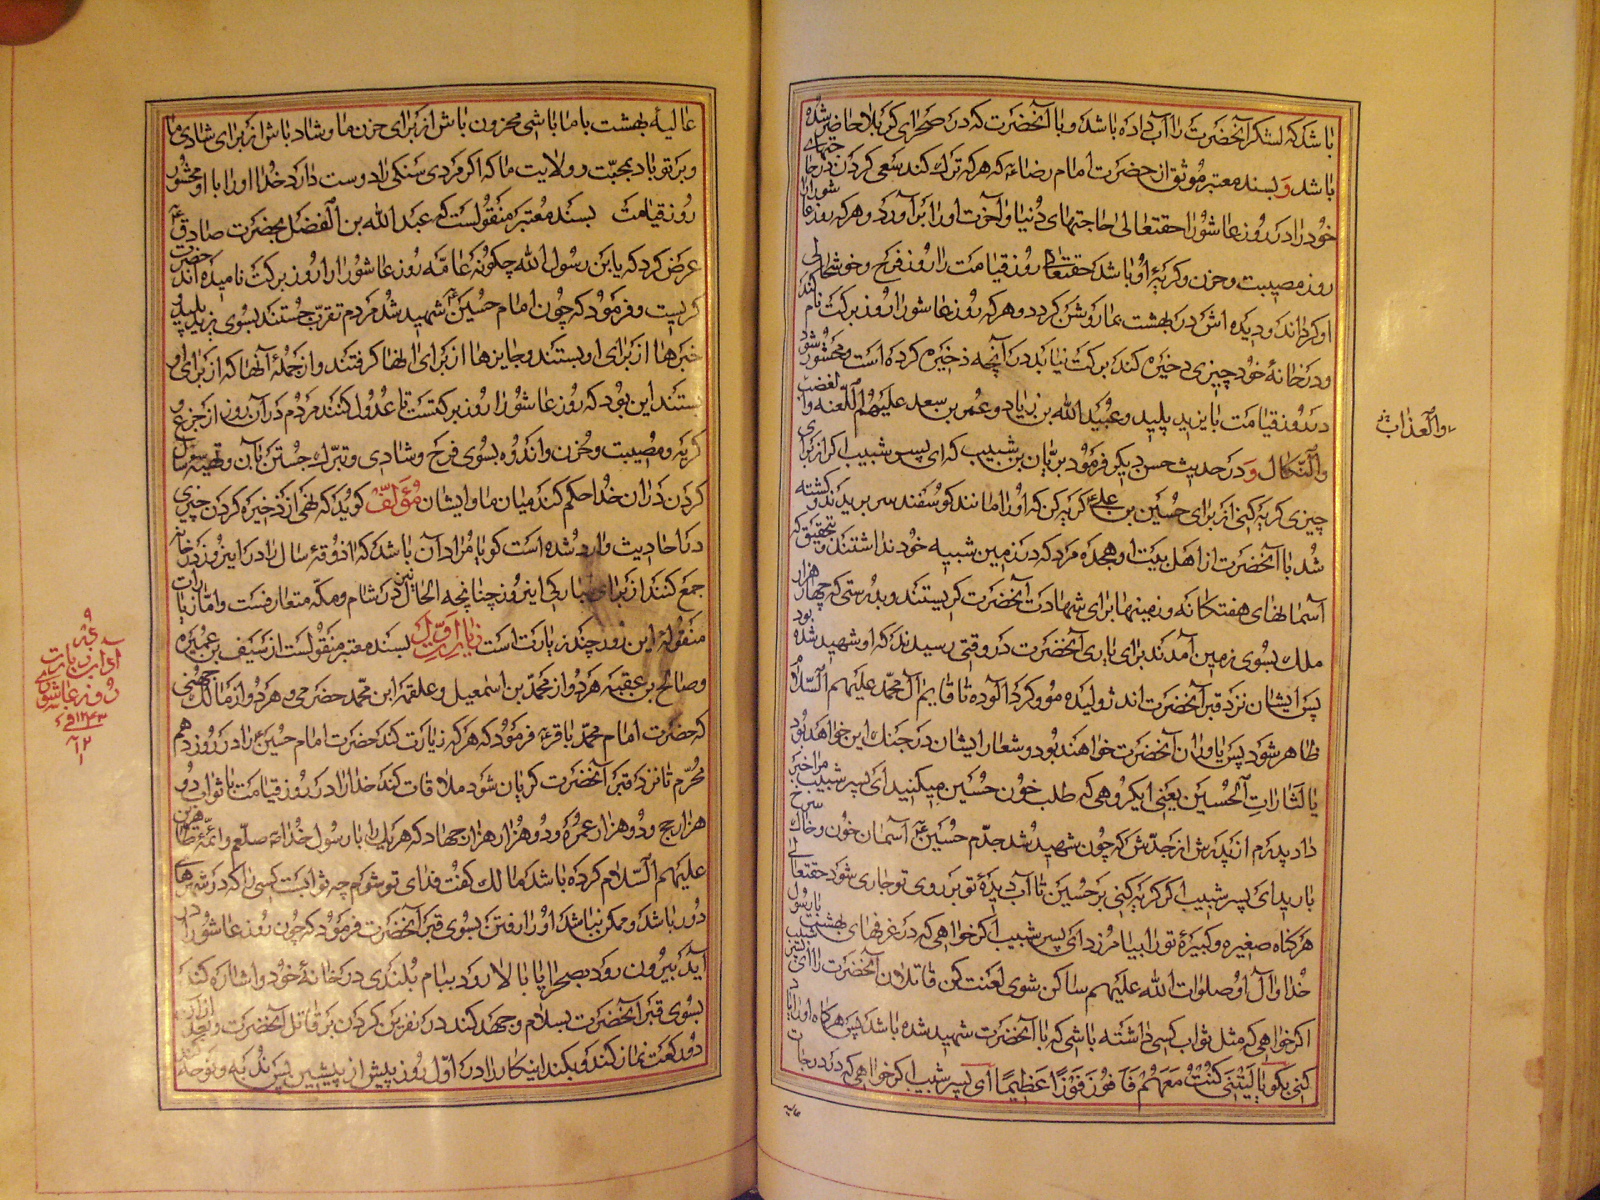 باشد که لشکر آنحضرت را آب داده باشد و با آنحضرت که در صحرای کربلا حاضر شده
باشد و بسند معتبر موثق از حضرت امام رضاء که هر که ترک کند سعی کردن در حاجتهای
خود را در روز عاشورا حقتعالی حاجتهای دنیا و آخرت او را برآورد و هر که روز عاشورا
روز مصیبت و حزن و کریهٔ او باشد حقتعالی روز قیامت را روز فرح و خوشحالی
او کرداند و دیده اش در بهشت بما روشن کردد و هر که روز عاشورا را روز برکت نام کند
و در خانهٔ خود چیزی ذخیره کند برکت نیابد در آنچه ذخیره کرده است و محشور شود
در روز قیامت با یزید پلید و عبید الله بن زیاد و عمر بن سعد علیهم اللعنه و الغضب
والنکال و در حدیث حسن دیکر فرمود بریان بن شبیب که ای پسر شبیب اکر از برای
چیزی کریه کنی از برای حسین بن علی ع کریه کن که او را مانند کوسفند سر بریدند و کشته
شد با آنحضرت از اهل بیت او هجده مرد که در زمین شبیه خود نداشتند و بتحقیق که
آسمانهای هفتکانه و زمینها برای شهادت آنحضرت کریستند و بدرستی که چهار هزار
ملک بسوی زمین آمدند برای یاری آنحضرت در وقتی رسیدند که او شهید شده بود
پس ایشان نزد قبر آنحضرت اند ژولیده مو و کرد آلوده تا قایم آل محمد علیهم السلام
ظاهر شود پس یاوران آنحضرت خواهند بود و شعار ایشان در جنک این خواهد بود
یا لثارات الحسین یعنی ایکروهی که طلب خون حسین میکنید ای پسر شبیب مرا خبر
داد پدرم از پدرش از جدش که چون شهید شد جدم حسین ع آسمان خون و خاک سرخ
بارید ای پسر شبیب اکر کریه کنی بر حسین تا آب دیدهٔ تو بر روی تو جاری شود حقتعالی
هر کناه صغیره و کبیرهٔ تو را بیامرزد ای پسر شبیب اکر خواهی که در غرفهای بهشت با رسول
خدا و آل او صلوات الله علیهم ساکن شوی لعنت کن قاتلان آنحضرت را ای پسر شبیب
اکر خواهی که مثل ثواب کسی داشته باشی که با آنحضرت شهید شده باشد پس هرکاه او را یاد
کنی بکو یا لیتنی کنت معهم فافوز فوزا عظیما ای پسر شبیب اکر خواهی که در درجات
والعذاب
عالیهٔ بهشت با ما باشی محزون باش از برای حزن ما و شاد باش از برای شادی ما
و بر تو باد بمحبت و ولایت ما که اکر مردی سنکی را دوست دارد خدا او را با او محشور
روز قیامت بسند معتبر منقولست که عبد الله بن الفضل بحضرت صادق ع
عرض کرد که یابن رسول الله چکونه عامه روز عاشورا را روز برکت نامیده اند حضرت
کریست و فرمود که چون امام حسین ع شهید شد مردم تقرب جستند بسوی یزید پلید و
خبرها از برای او بستند و جایزها از برای انها کرفتند و از جملهٔ آنها که از برای او
بستند این بود که روز عاشورا روز برکتست تا عدول کنند مردم در آن روز از جزع و
کریه و مصیبت و حزن و اندوه بسوی فرح و شادی و تبرک جستن بآن و تهیه
کردن در آن خدا حکم کند میان ما و ایشان مؤلف کوید که نهی از ذخیره کردن چیزی
در احادیث وارد شده است کویا مراد آن باشد که اذوقهٔ سال را در این روز در خانه
جمع کنند از برای مبارکی اینروز چنانچه الحال نیز در شام و مکه متعارفست و اما زیارات
منقولهٔ این روز چند زیارت است زیارت اول بسند معتبر منقولست از سیف بن عمیره
و صالح بن عقبه هر دو از محمد بن اسمعیل و علقمه ابن محمد حضرمی و هر دو از مالک جهنی
که حضرت امام محمد باقر ع فرمود که هر که زیارت کند حضرت امام حسین ع را در روز دهم
محرم تا نزد قبر آنحضرت کریان شود ملاقات کند خدا را در روز قیامت با ثواب دو
هزار حج و دو هزار عمره و دو هزار هزار جهاد که هر یک را با رسول خداء صلعم و ائمهٔ طاهرین
علیهم السلام کرده باشد مالک کفت فدای تو شوم چه ثوابست کسی را که در شهرها
دور باشد و ممکن نباشد او را رفتن بسوی قبر آنحضرت فرمود که چون روز عاشورا در
آید بیرون رود بصحرا یا بالا رود ببام بلندی در خانهٔ خود و اشاره کند
بسوی قبر آنحضرت بسلام و جهد کند در نفرین کردن بر قاتل آنحضرت و بعد از آن
دو رکعت نماز کند و بکند اینکار را در اول روز پیش از پیشین پس ندبه و نوحه کند
روز عاشورا
۱۲۴۳